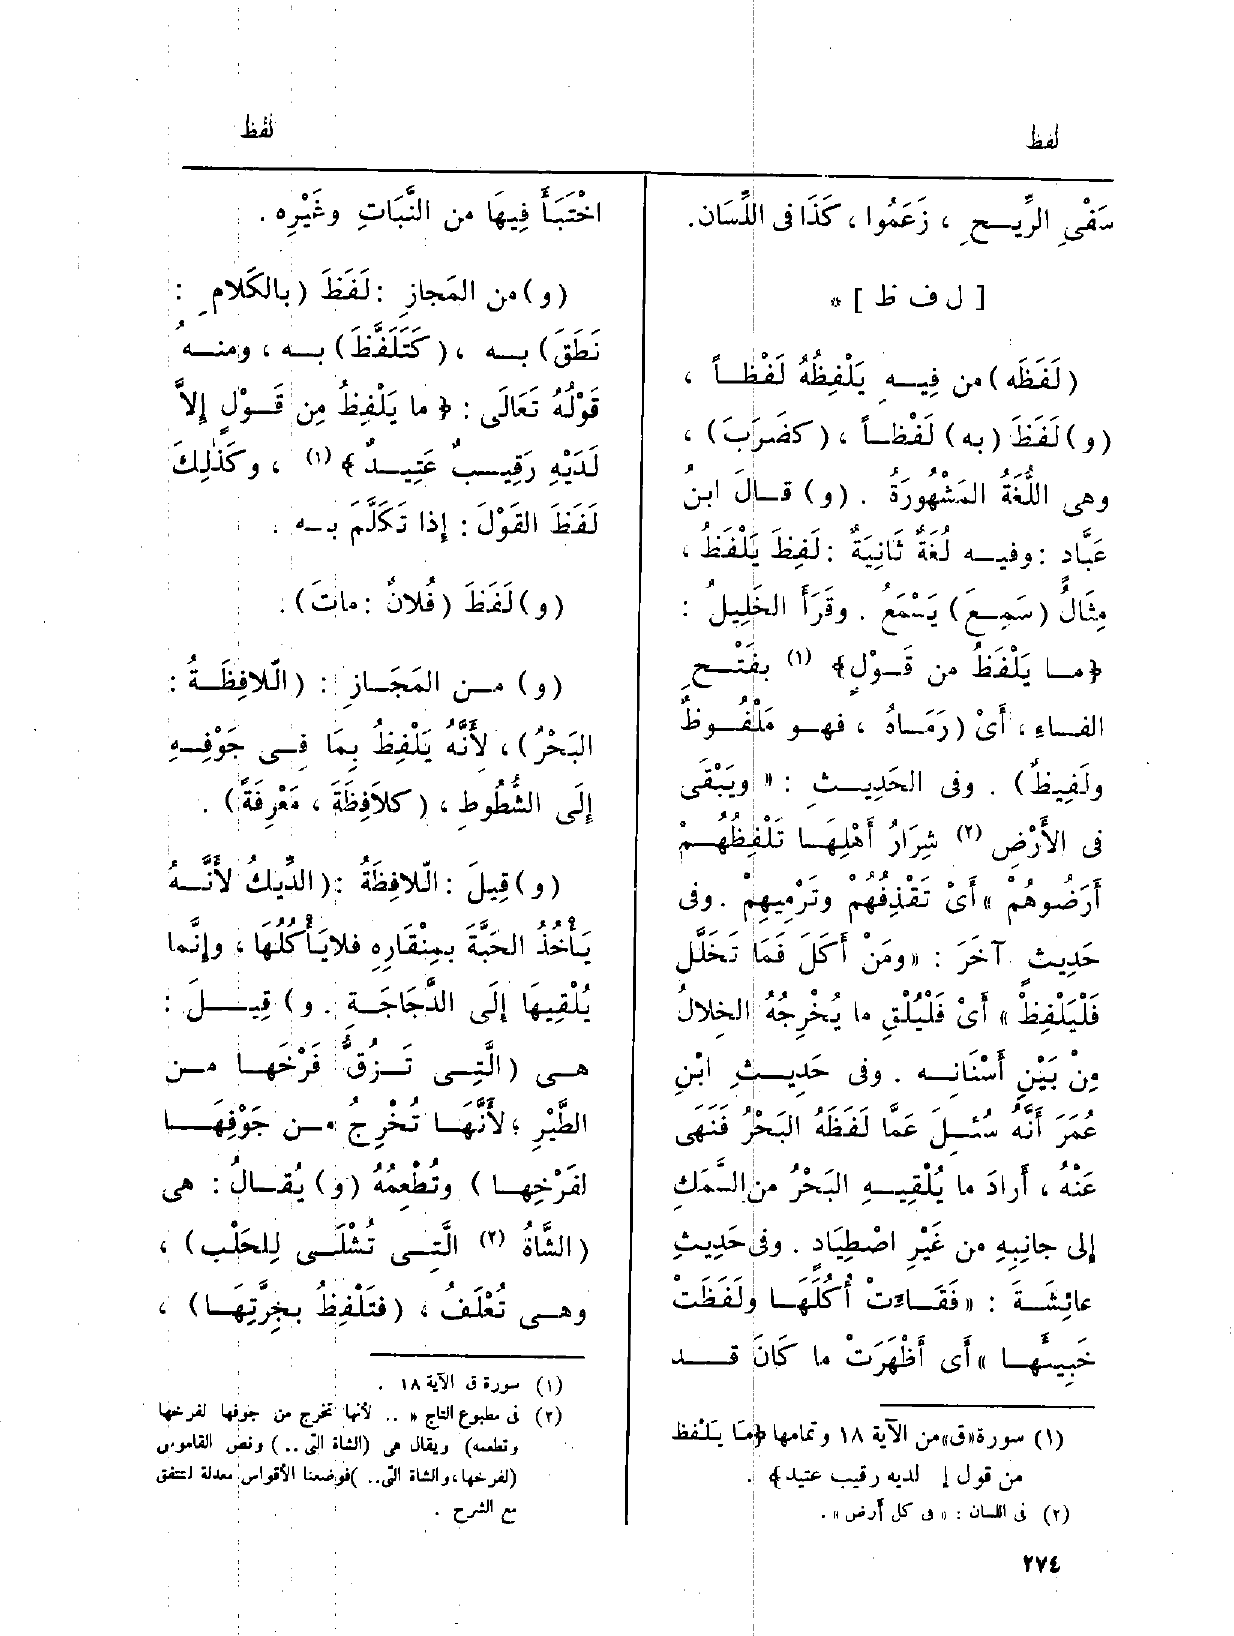 لفظ
سَفْىِ الرِّيــحِ ، زَعَمُوا ، كَذَا فى اللِّسَان.
[ ل ف ظ ] *
(لَفَظَه) من فِيــهِ يَلْفِظُهُ لَفْظــاً ،
(و) لَفَظَ (به) لَفْظــاً ، (كضَرَبَ) ،
وهى اللُّغَةُ المَشْهُورَةُ . (و) قــالَ ابنُ
عَبَّاد : وفيــه لُغَةٌ ثَانِيَةٌ : لَفِظَ يَلْفَظُ ،
مِثَالُ (سَمِــعَ) يَسْمَعُ . وقَرَأَ الخَلِيلُ :
﴿مــا يَلْفَظُ من قَــوْلٍ﴾ (١) بفَتْــحِ
الفــاءِ ، أَىْ (رَمَــاهُ ، فهــو مَلْفُــوظٌ
ولَفِيظٌ) . وفى الحَدِيــثِ : « ويَبْقَى
فى الأَرْضِ (٢) شِرَارُ أَهْلِهَــا تَلْفِظُهُــمْ
أَرَضُوهُمْ » أَىْ تَقْذِفُهُمْ وتَرْمِيهِمْ . وفى
حَدِيثٍ آخَرَ : « ومَنْ أَكَلَ فَمَا تَخَلَّل
فَلْيَلْفِظْ » أَىْ فَلْيُلْقِ ما يُخْرِجُهُ الخِلالُ
مِنْ بَيْنِ أَسْنَانِــه . وفى حَدِيــثِ ابْنِ
عُمَرَ أَنَّهُ سُئِــلَ عَمَّا لَفَظَهُ البَحْرُ فَنَهَى
عَنْهُ ، أَرادَ ما يُلْقِيــهِ البَحْرُ من السَّمَكِ
إلى جانِبِهِ من غَيْرِ اصْطِيَادٍ . وفى حَدِيثِ
عائِشَــةَ : « فَقَــاءَت أُكُلَهَــا ولَفَظَتْ
خَبِيئَهــا » أَى أَظْهَرَتْ ما كَانَ قَــد
(١) سورة «ق» من الآية ١٨ وتمامها ﴿مَا يَلْفظ
من قول إلا لديه رقيب عتيد﴾ .
(٢) فى اللسان : « فى كل أرض » .
٢٧٤
لفظ
اخْتَبَأَ فِيهَا من النَّبَاتِ وغَيْرِه .
(و) من المَجازِ : لَفَظَ (بالكَلامِ :
نَطَقَ) بــه ، (كَتَلَفَّظَ) بــه ، ومنــهُ
قَوْلُهُ تَعَالَى : ﴿ ما يَلْفِظُ مِن قَــوْلٍ إِلاَّ
لَدَيْهِ رَقِيــبٌ عَتِيــدٌ ﴾ (١) ، وكَذٰلِكَ
لَفَظَ القَوْلَ : إِذا تَكَلَّمَ بــه .
(و) لَفَظَ (فُلانٌ : ماتَ) .
(و) مــن المَجَــازِ : (الَّلافِظَــةُ :
البَحْرُ) ، لأَنَّهُ يَلْفِظُ بِمَا فــى جَوْفِــهِ
إِلَى الشُّطُوطِ ، (كلاَفِظَةَ ، مَعْرِفَةً) .
(و) قِيلَ : الَّلافِظَةُ : (الدِّيكُ لأَنَّــهُ
يَــأْخُذُ الحَبَّةَ بــمِنْقَارِه فلا يَأْكُلُهَا ، وإِنَّما
يُلْقِيهَا إِلَى الدَّجَاجَــةِ . و) قِيــلَ :
هــى (الَّتِــى تَــزُقُّ فَرْخَهــا مــن
الطَّيْرِ ؛ لأَنَّهَــا تُخْرِجُ مــن جَوْفِهَــا
لفَرْخِهــا ) وتُطْعِمُهُ (و) يُقــالُ : هى
(الشَّاةُ (٢) الَّتِــى تُشْلَــى لِلحَلْب) ،
وهــى تُعْلَفُ ، (فتَلْفِظُ بِجِرَّتِهَــا) ،
(١) سورة ق الآية ١٨ .
(٢) فى مطبوع التاج « .. لأنها تخرج من جوفها لفرخها
وتطعمه) ويقال هى (الشاة التى ..) ونص القاموس
(لفرخها ، والشاة التى.. ) فوضعنا الأقواس معدلة لتتفق
مع الشرح .